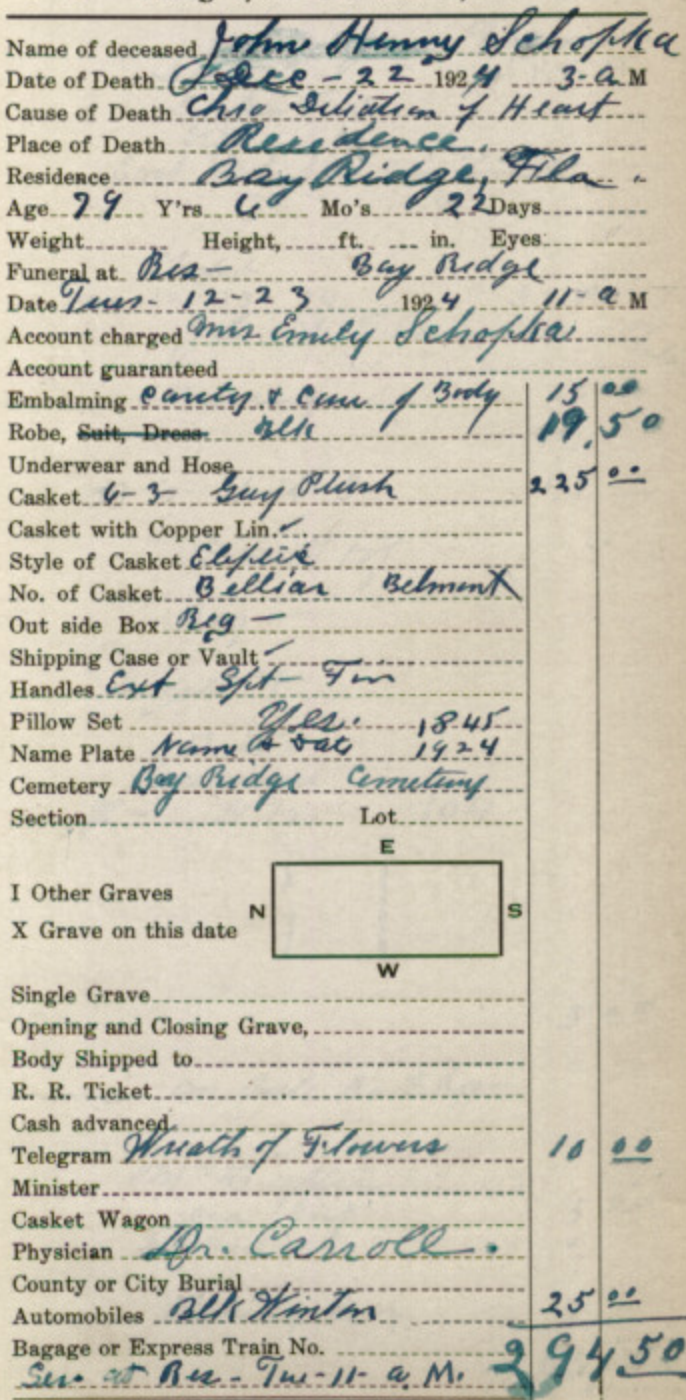 Name of deceased John Henny Schopka
Date of Death Dec - 22 1924 3-a M
Cause of Death Chro Diliation of Heart
Place of Death Residence.
Residence Bay Ridge, Fla.
Age 79 Y'rs 6 Mo's 22 Days
Weight Height, ft. in. Eyes
Funeral at Res- Bay Ridge
Date Tues- 12-23 1924 11-a M
Account charged Mrs Emily Schopka
Account guaranteed
Embalming Cavity & Care of Body 15 00
Robe, Suit, Dress Blk 19.50
Underwear and Hose
Casket 6-3 Gray Plush 225 00
Casket with Copper Lin.
Style of Casket Eliptic
No. of Casket Belliar Belmont
Out side Box Reg -
Shipping Case or Vault
Handles Ext
Pillow Set Yes. 1845
Name Plate Name & Date 1924
Cemetery Bay Ridge Cemetery
Section Lot
E
I Other Graves
N S
X Grave on this date
W
Single Grave
Opening and Closing Grave,
Body Shipped to
R. R. Ticket
Cash advanced
Telegram Wreath of Flowers 10 00
Minister
Casket Wagon
Physician Dr. Carroll.
County or City Burial
Automobiles Blk Winton 25 00
Bagage or Express Train No. 294 50
Ser. at Res- Tue-11- a. M.